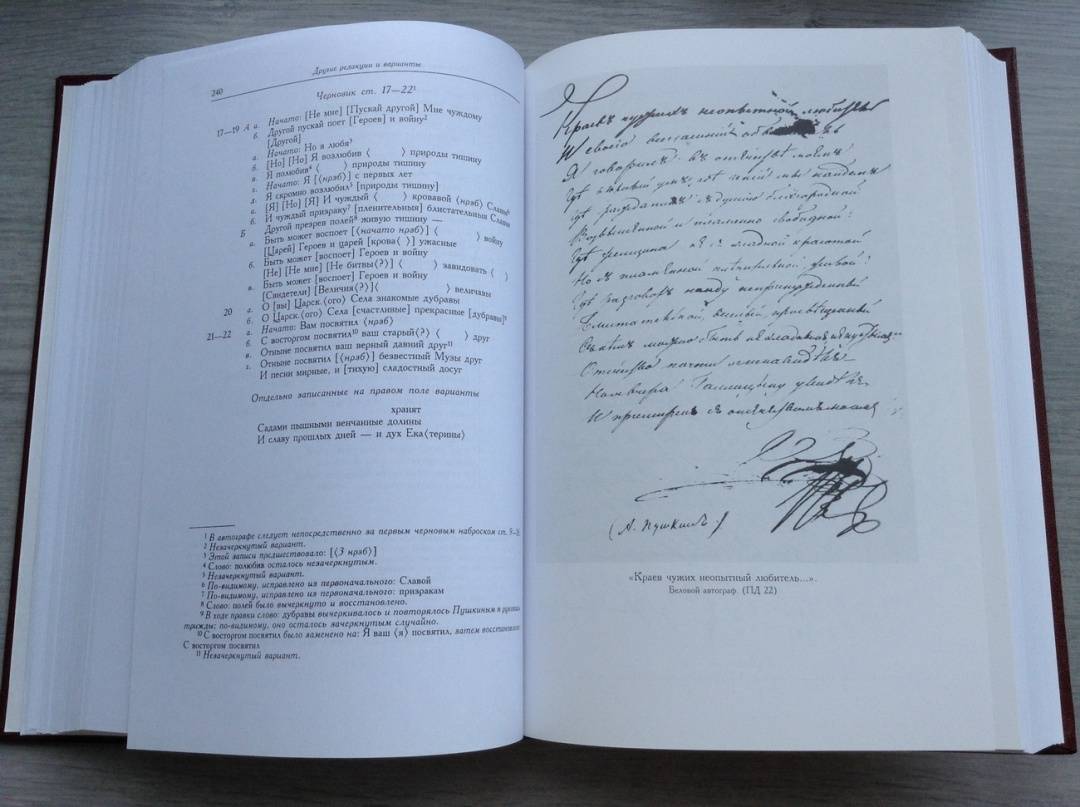 240
Другие редакции и варианты
Черновик ст. 17—22¹
17—19 А а. Начато: [Не мне] [Пускай другой] Мне чуждому
б. Другой пускай поет [Героев] и войну²
[Другой]
а. Начато: Но я любя³
б. [Но] [Но] Я возлюбив ⟨ ⟩ природы тишину
в. Я полюбив⁴ ⟨ ⟩ природы тишину
г. Начато: Я [⟨нрзб⟩] с первых лет
д. Я скромно возлюбил⁵ [природы тишину]
а. [Я] [Но] [Я] И чуждый ⟨ ⟩ кровавой ⟨нрзб⟩ Славы⁶
б. И чуждый призраку⁷ [пленительный] блистательныя Славы
Другой презрев полей⁸ живую тишину —
Б Быть может воспоет [⟨начато нрзб⟩] ⟨ ⟩ войну
а. [Царей] Героев и царей [крова⟨ ⟩] ужасные
Быть может [воспоет] Героев и войну
б. [Не] [Не мне] [Не битвы⟨?⟩] ⟨ ⟩ завидовать ⟨ ⟩
Быть может [воспоет] Героев и войну
в. [Свидетели] [Величия⟨?⟩] ⟨ ⟩ величавы
20 а. О [вы] Царск⟨ого⟩ Села знакомые дубравы
б. О Царск⟨ого⟩ Села [счастливые] прекрасные [дубравы]⁹
21—22 а. Начато: Вам посвятил ⟨нрзб⟩
б. С восторгом посвятил¹⁰ ваш старый⟨?⟩ ⟨ ⟩ друг
в. Отныне посвятил ваш верный давний друг¹¹
г. Отныне посвятил [⟨нрзб⟩] безвестный Музы друг
И песни мирные, и [тихую] сладостный досуг
Отдельно записанные на правом поле варианты
хранят
Садами пышными венчанные долины
И славу прошлых дней — и дух Ека⟨терины⟩
¹ В автографе следует непосредственно за первым черновым наброском ст.
² Незачеркнутый вариант.
³ Этой записи предшествовало: [⟨3 нрзб⟩]
⁴ Слово: полюбив осталось незачеркнутым.
⁵ Незачеркнутый вариант.
⁶ По-видимому, исправлено из первоначального: Славой
⁷ По-видимому, исправлено из первоначального: призракам
⁸ Слово: полей было вычеркнуто и восстановлено.
⁹ В ходе правки слово: дубравы вычеркивалось и повторялось Пушкиным в рукописи
трижды; по-видимому, оно осталось зачеркнутым случайно.
¹⁰ С восторгом посвятил было заменено на: Я ваш ⟨я⟩ посвятил, затем восстановлено
С восторгом посвятил
¹¹ Незачеркнутый вариант.
Краевъ чужихъ неопытной любитель
И своего всегдашний обвинитель
Я говорилъ: въ отечествѣ моемъ
Гдѣ вѣрный умъ, гдѣ гений мы найдемъ
Гдѣ гражданинъ съ душою благородной
Возвышенной и пламенно свободной?
Гдѣ женщина не съ хладной красотой
Но съ пламенной плѣнительной живой?
Гдѣ разговоръ найду непринужденный
Блистательный, веселый, просвѣщенный
Съ кѣмъ можно быть не хладнымъ не пустымъ?
Отечество почти я ненавидѣлъ
Но я вчера Голицыну увидѣлъ
И примиренъ съ отечествомъ моимъ
(А. Пушкинъ)
«Краев чужих неопытный любитель...».
Беловой автограф. (ПД 22)